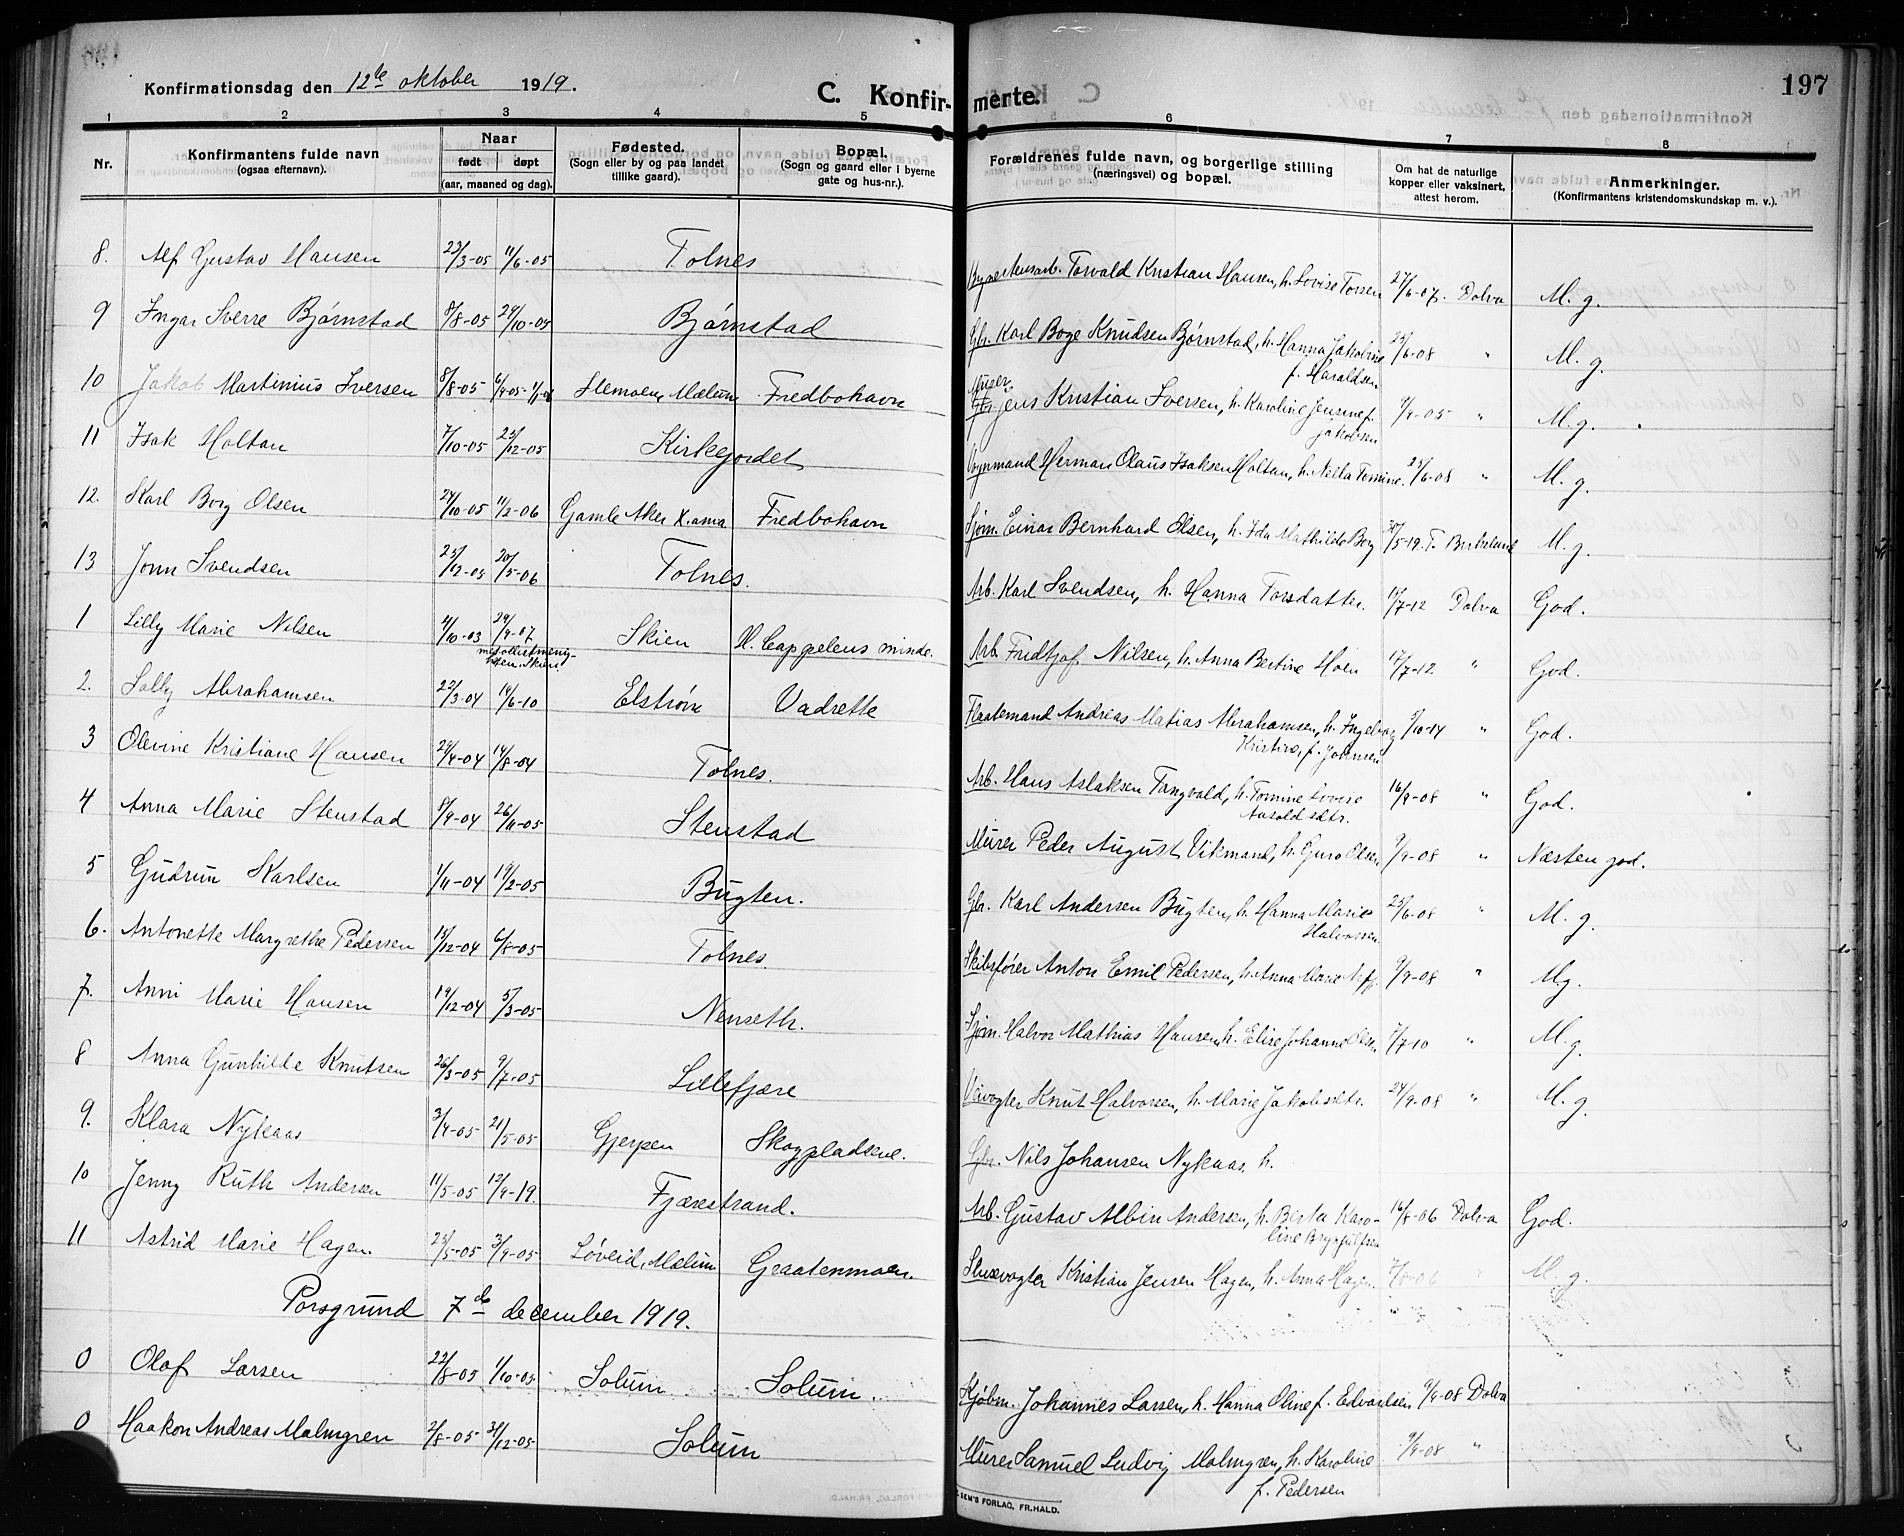 Konfirmationsdag den 12te oktober 1919.
C. Konfirmerte.
197
1 2 3 4 5 6 7 8
Nr.
Konfirmantens fulde navn
(ogsaa efternavn).
Naar
født døpt
(aar, maaned og dag).
Fødested.
(Sogn eller by og paa landet
tillike gaard).
Bopæl.
(Sogn og gaard eller i byerne
gate og hus-nr.).
Forældrenes fulde navn, og borgerlige stilling
(næringsvei) og bopæl.
Om hat de naturlige
kopper eller vaksinert,
attest herom.
Anmerkninger.
(Konfirmantens kristendomskundskap m. v.).
8. Alf Gustav Hansen 23/3-05 11/6-05 Tolnes Torvald Kristian Hansen, h. Lovise Torsen 27/6-07. Dolva M. g.
9 Ingar Sverre Bjørnstad 8/8-05 29/10-05 Bjørnstad Gbr. Karl Boye Knudsen Bjørnstad, h. Hanna Jakobine 25/6-08 " M. g.
f. Haraldsen
10 Jakob Martinius Iversen 8/8-05 Stemoen, Mælum Fredbohavn Jens Kristian Iversen, h. Karoline Jensine f. 7/9-05 " M. g.
Jakobsen
11 Isak Holtan 7/10-05 25/12-05 Kirkegordet Vognmand Herman Olaus Isaksen Holtan, h. Nella Tomine. 25/6-08 " M. g.
12. Karl Borg Olsen 24/10-05 11/2-06 Gamle Aker X.ania Fredbohavn Sjøm. Einar Bernhard Olsen, h. Ida Mathilde Borg 30/5-19. T. Birkelund M. g.
13 Jonn Svendsen 25/12-05 20/5-06 Tolnes. Arb. Karl Svendsen, h. Hanna Torsdatter. 17/7-12 Dolva God.
1 Lilly Marie Nilsen 4/10-03 29/9-07 Skien H. Cappelens minde. Arb. Fridtjof Nilsen, h. Anna Bertine Hoen 17/7-12 " God.
2. Solly Abrahamsen 22/3-04 19/6-10 Elstrøm Vadrette Flaatemand Andreas Matias Abrahamsen, h. Ingeborg 9/10-14 " God.
Kristine, f. Johnsen
3 Olevine Kristiane Hansen 29/4-04 14/8-04 Tolnes. Arb. Hans Aslaksen Tangvald, h. Tomine Lovise 16/9-08 " God.
4 Anna Marie Stenstad 8/9-04 26/11-05 Stenstad Murer Peder August Vikmand, h. Guro Olsen 9/9-08 " Næsten god.
5 Gudrun Karlsen 1/11-04 19/2-05 Bugten. Gbr. Karl Andersen Bugten, h. Hanna Marie 25/6-08 " M. g.
Halvorsen.
6. Antonette Margrethe Pedersen 15/12-04 6/8-05 Tolnes. Skibsfører Anton Emil Pedersen, h. Anna Marie 9/9-08 " M.g.
7. Anni Marie Hansen 19/12-04 5/3-05 Nenseth. Sjøm. Halvor Mathias Hansen, h. Elise Johanne Olsen 7/7-10 " M. g.
8 Anna Gunhilde Knutsen 26/3-05 9/7-05 Lillefjære Veivogter Knut Halvorsen, h. Marie Jakobsdtr. 24/9-08 " M. g.
9. Klara Nykaas 3/4-05 21/5-05 Gjerpen Skogpladsene. Gbr. Nils Johansen Nykaas. h.
10 Jenny Ruth Andersen 11/5-05 12/9-19. Fjærestrand. Arb. Gustav Albin Andersen, h. Berta Karo- 16/8-06 Dolva God.
line Brynjulfsen
11 Astrid Marie Hagen. 25/5-05 3/9-05 Løveid, Mælum Graatenmoen. Slusevogter Kristian Jensen Hagen, h. Anna Hagen. M. g.
Porsgrund 7de december 1919.
0 Olaf Larsen 22/8-05 1/10-05 Solum Solum. Kjøbm. Johannes Larsen, h. Hanna Oline f. Edvardsen 9/9-08 Dolva
0 Haakon Andreas Malmgren 2/8-05 31/12-05 Solum Murer Samuel Ludvig Malmgren, h. Karoline 9/9-08 "
f. Pedersen
SEM'S FORLAG, FR.HALD.